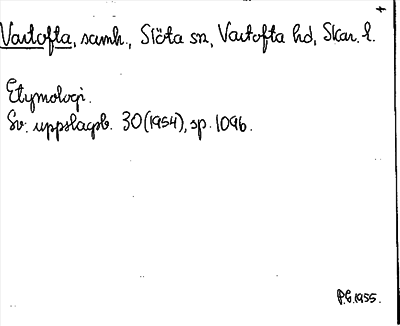 +
Vartofta, samh., Slöta sn, Vartofta hd, Skar. l.
Etymologi.
Sv. uppslagsb. 30 (1954), sp. 1096.
P.E. 1955.